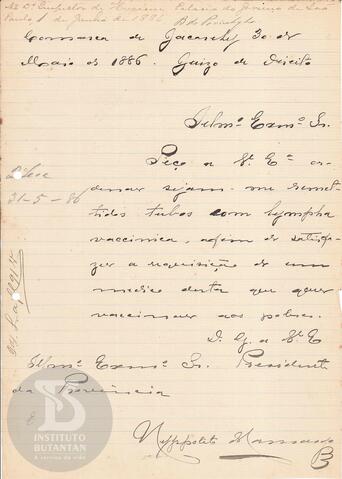 Ao Dr Inspector de Hygiene Palacio do Governo de São
Paulo 1 de Junho de 1886
Comarca de Jacarehy 30 de
Maio de 1886. Juizo de Direito
Illmo. Exmo. Sr.
Peço a V. Ex.ª or-
denar sejam-me remet-
tidos tubos com lympha
vaccinica, afim de satisfa-
zer a requisição de um
medico desta que quer
vaccinar aos pobres.
D. G. a V. E
Illmo. Exmo. Sr. Presidente
da Provincia
31-5-86
Hyppolito
INSTITUTO
BUTANTAN
A serviço da vida